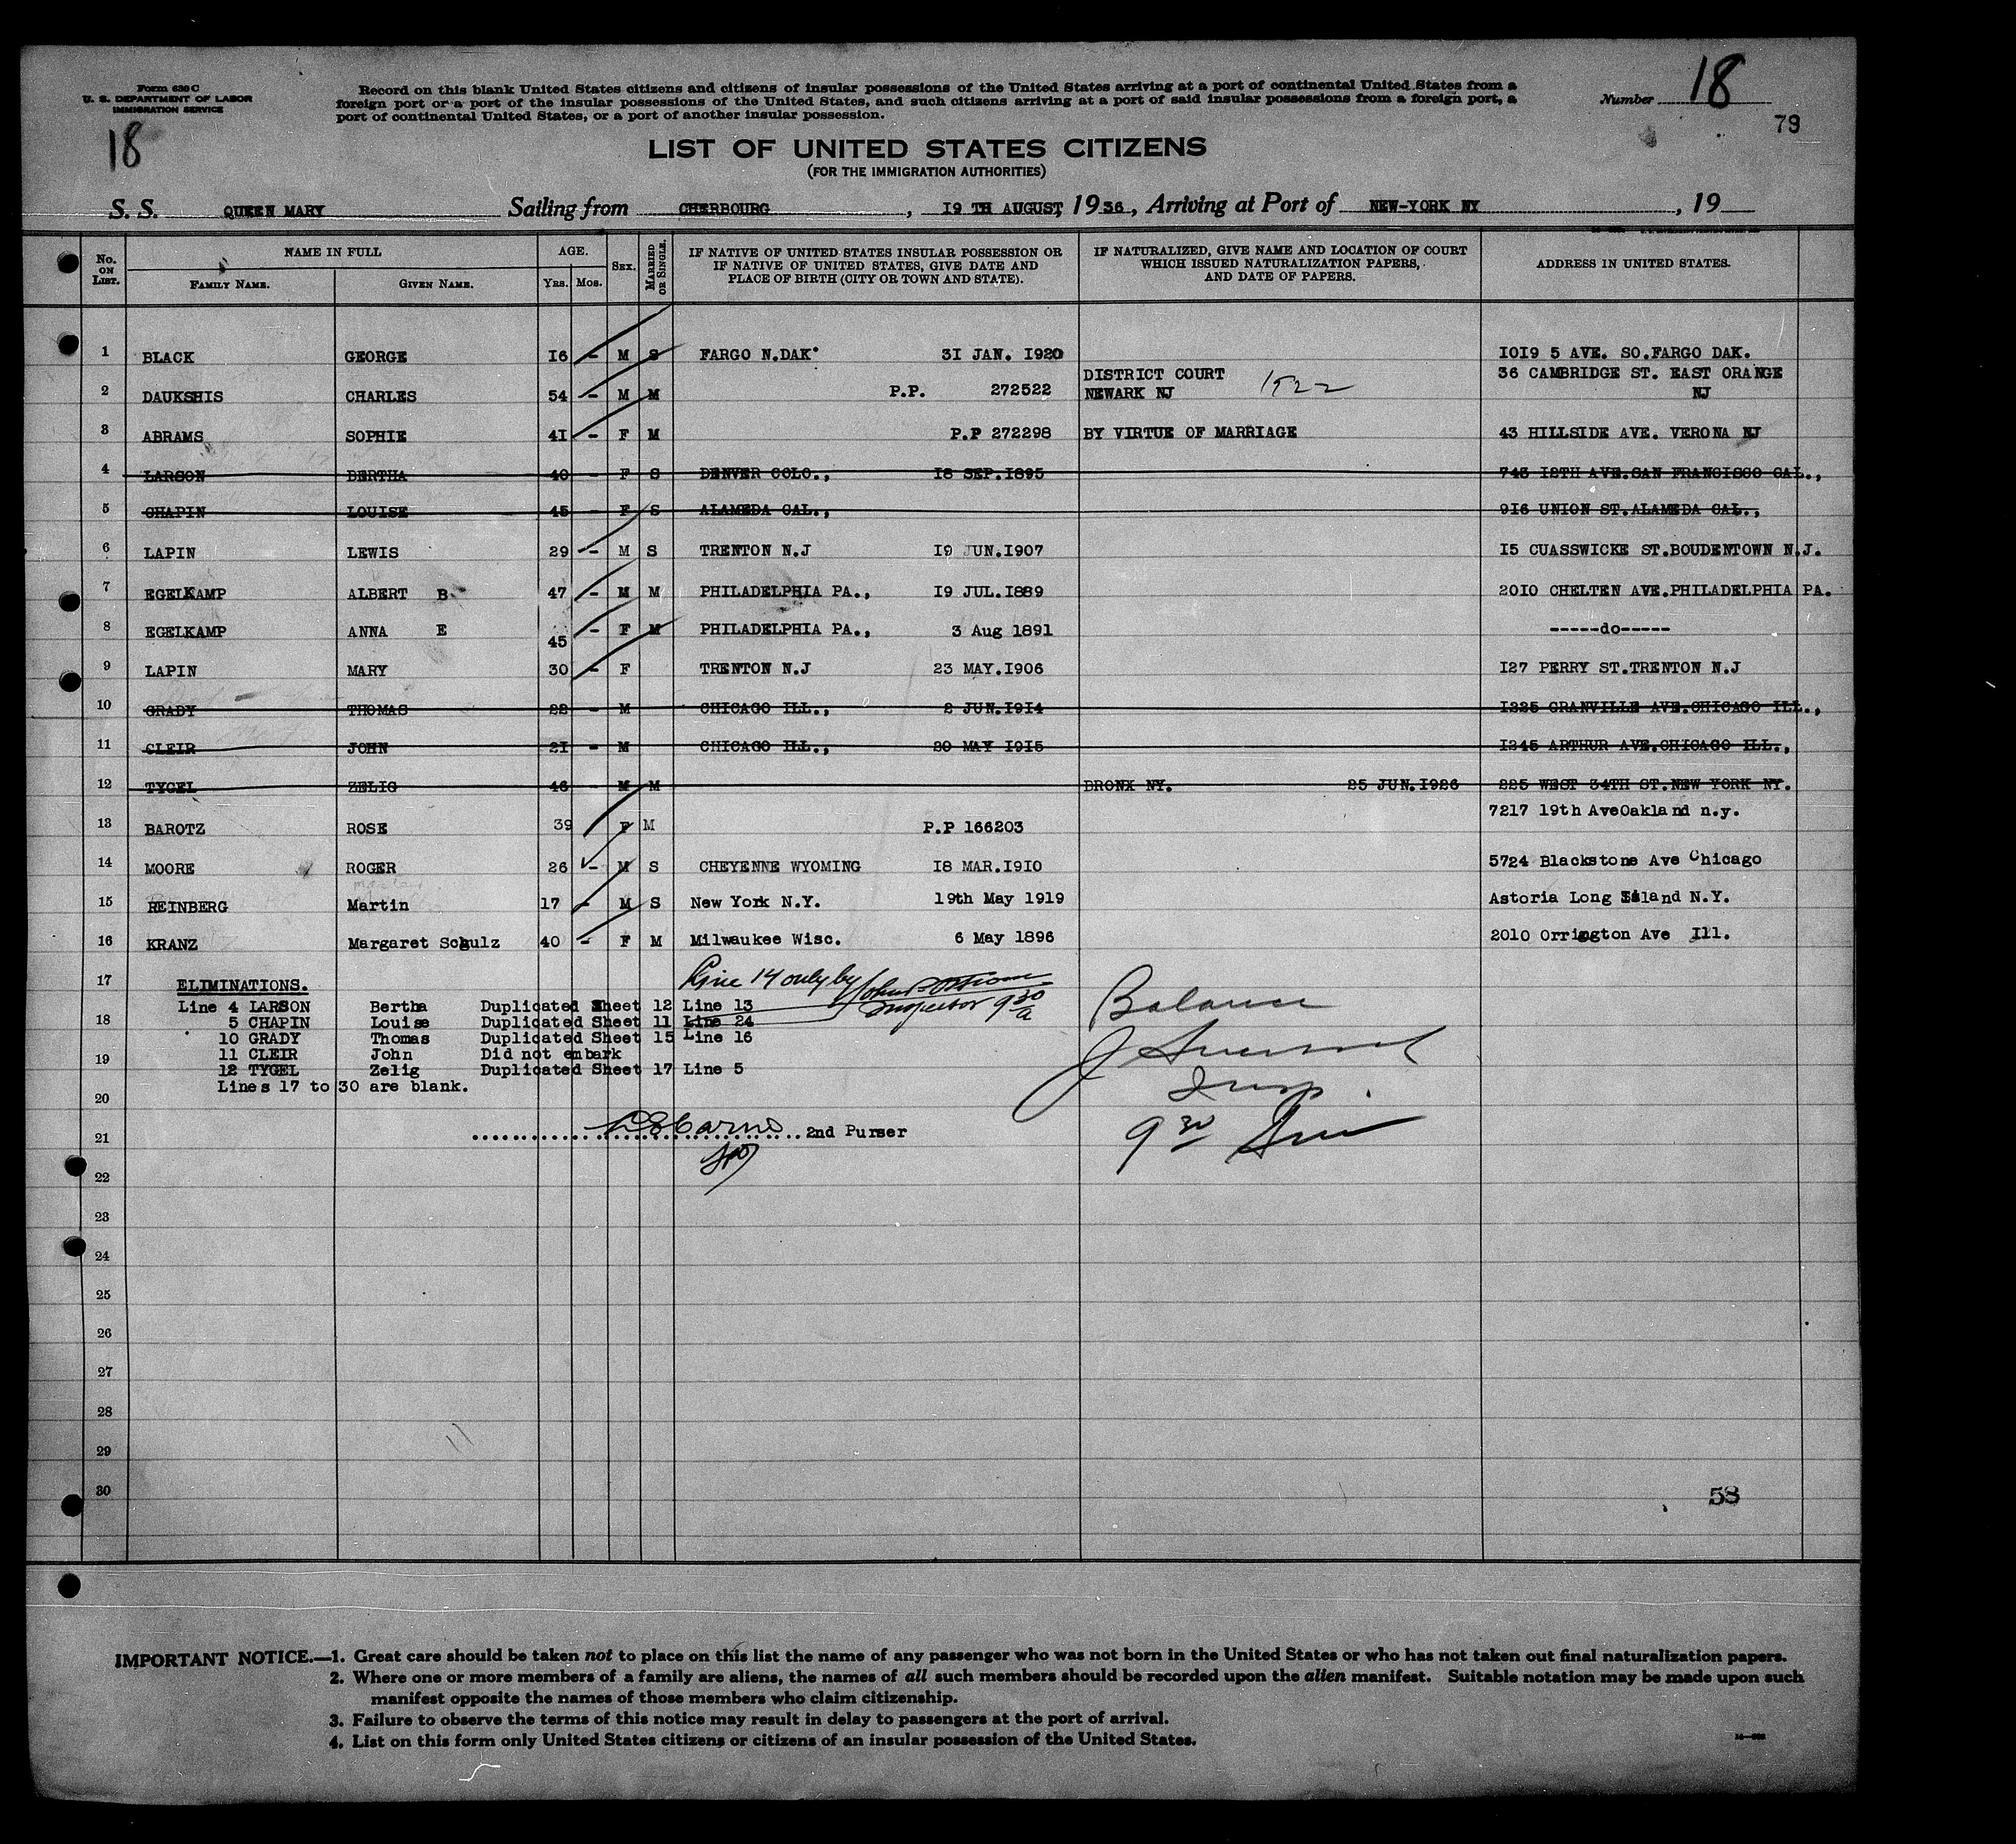 Form 630 C
U. S. DEPARTMENT OF LABOR
IMMIGRATION SERVICE
18
Record on this blank United States citizens and citizens of insular possessions of the United States arriving at a port of continental United States from a
foreign port or a port of the insular possessions of the United States, and such citizens arriving at a port of said insular possessions from a foreign port, a
port of continental United States, or a port of another insular possession.
Number 18
79
LIST OF UNITED STATES CITIZENS
(FOR THE IMMIGRATION AUTHORITIES)
S. S. QUEEN MARY Sailing from CHERBOURG, I9 TH AUGUST, 1936, Arriving at Port of NEW-YORK NY, 19
No. ON LIST. NAME IN FULL FAMILY NAME. GIVEN NAME. AGE. YRS. MOS. SEX. MARRIED OR SINGLE. IF NATIVE OF UNITED STATES INSULAR POSSESSION OR IF NATIVE OF UNITED STATES, GIVE DATE AND PLACE OF BIRTH (CITY OR TOWN AND STATE). IF NATURALIZED, GIVE NAME AND LOCATION OF COURT WHICH ISSUED NATURALIZATION PAPERS, AND DATE OF PAPERS. ADDRESS IN UNITED STATES.
1 BLACK GEORGE I6 - M S FARGO N.DAK. 3I JAN. I920 IOI9 5 AVE. SO.FARGO DAK.
2 DAUKSHIS CHARLES 54 - M M P.P. 272522 DISTRICT COURT NEWARK NJ 1522 36 CAMBRIDGE ST. EAST ORANGE NJ
3 ABRAMS SOPHIE 4I - F M P.P 272298 BY VIRTUE OF MARRIAGE 43 HILLSIDE AVE. VERONA NJ
4 LARSON BERTHA 40 - F S DENVER COLO., I8 SEP.I895 743 I2TH AVE.SAN FRANCISCO CAL.,
5 CHAPIN LOUISE 45 - F S ALAMEDA CAL., 9I6 UNION ST.ALAMEDA CAL.,
6 LAPIN LEWIS 29 - M S TRENTON N.J I9 JUN.I907 I5 CUASSWICKE ST.BOUDENTOWN N.J.
7 EGELKAMP ALBERT B 47 - M M PHILADELPHIA PA., I9 JUL.I889 20IO CHELTEN AVE.PHILADELPHIA PA.
8 EGELKAMP ANNA E 45 - F M PHILADELPHIA PA., 3 Aug 1891 -----do-----
9 LAPIN MARY 30 - F TRENTON N.J 23 MAY.I906 I27 PERRY ST.TRENTON N.J
10 GRADY THOMAS 22 - M CHICAGO ILL., 2 JUN.I9I4 I225 GRANVILLE AVE.CHICAGO ILL.,
11 CLEIR JOHN 2I - M CHICAGO ILL., 20 MAY I9I5 I245 ARTHUR AVE.CHICAGO ILL.,
12 TYGEL ZELIG 46 - M M BRONX NY. 25 JUN.I926 225 WEST 34TH ST.NEW YORK NY.
13 BAROTZ ROSE 39 F M P.P 166203 7217 19th AveOakland n.y.
14 MOORE ROGER 26 - M S CHEYENNE WYOMING I8 MAR.I9IO 5724 Blackstone Ave Chicago
15 REINBERG Martin 17 - M S New York N.Y. 19th May 1919 Astoria Long Island N.Y.
16 KRANZ Margaret Schulz 40 - F M Milwaukee Wisc. 6 May 1896 2010 Orrington Ave Ill.
17 ELIMINATIONS. Line 14 only by
Inspector 9 30 a
Balance
Line 4 LARSON Bertha Duplicated Sheet 12 Line 13
18 5 CHAPIN Louise Duplicated Sheet 11 Line 24
10 GRADY Thomas Duplicated Sheet 15 Line 16
19 11 CLEIR John Did not embark
12 TYGEL Zelig Duplicated Sheet 17 Line 5
Lines 17 to 30 are blank.
Insp.
20
21 2nd Purser
9 30
22
23
24
25
26
27
28
29
30
58
IMPORTANT NOTICE.—1. Great care should be taken not to place on this list the name of any passenger who was not born in the United States or who has not taken out final naturalization papers.
2. Where one or more members of a family are aliens, the names of all such members should be recorded upon the alien manifest. Suitable notation may be made upon such
manifest opposite the names of those members who claim citizenship.
3. Failure to observe the terms of this notice may result in delay to passengers at the port of arrival.
4. List on this form only United States citizens or citizens of an insular possession of the United States.